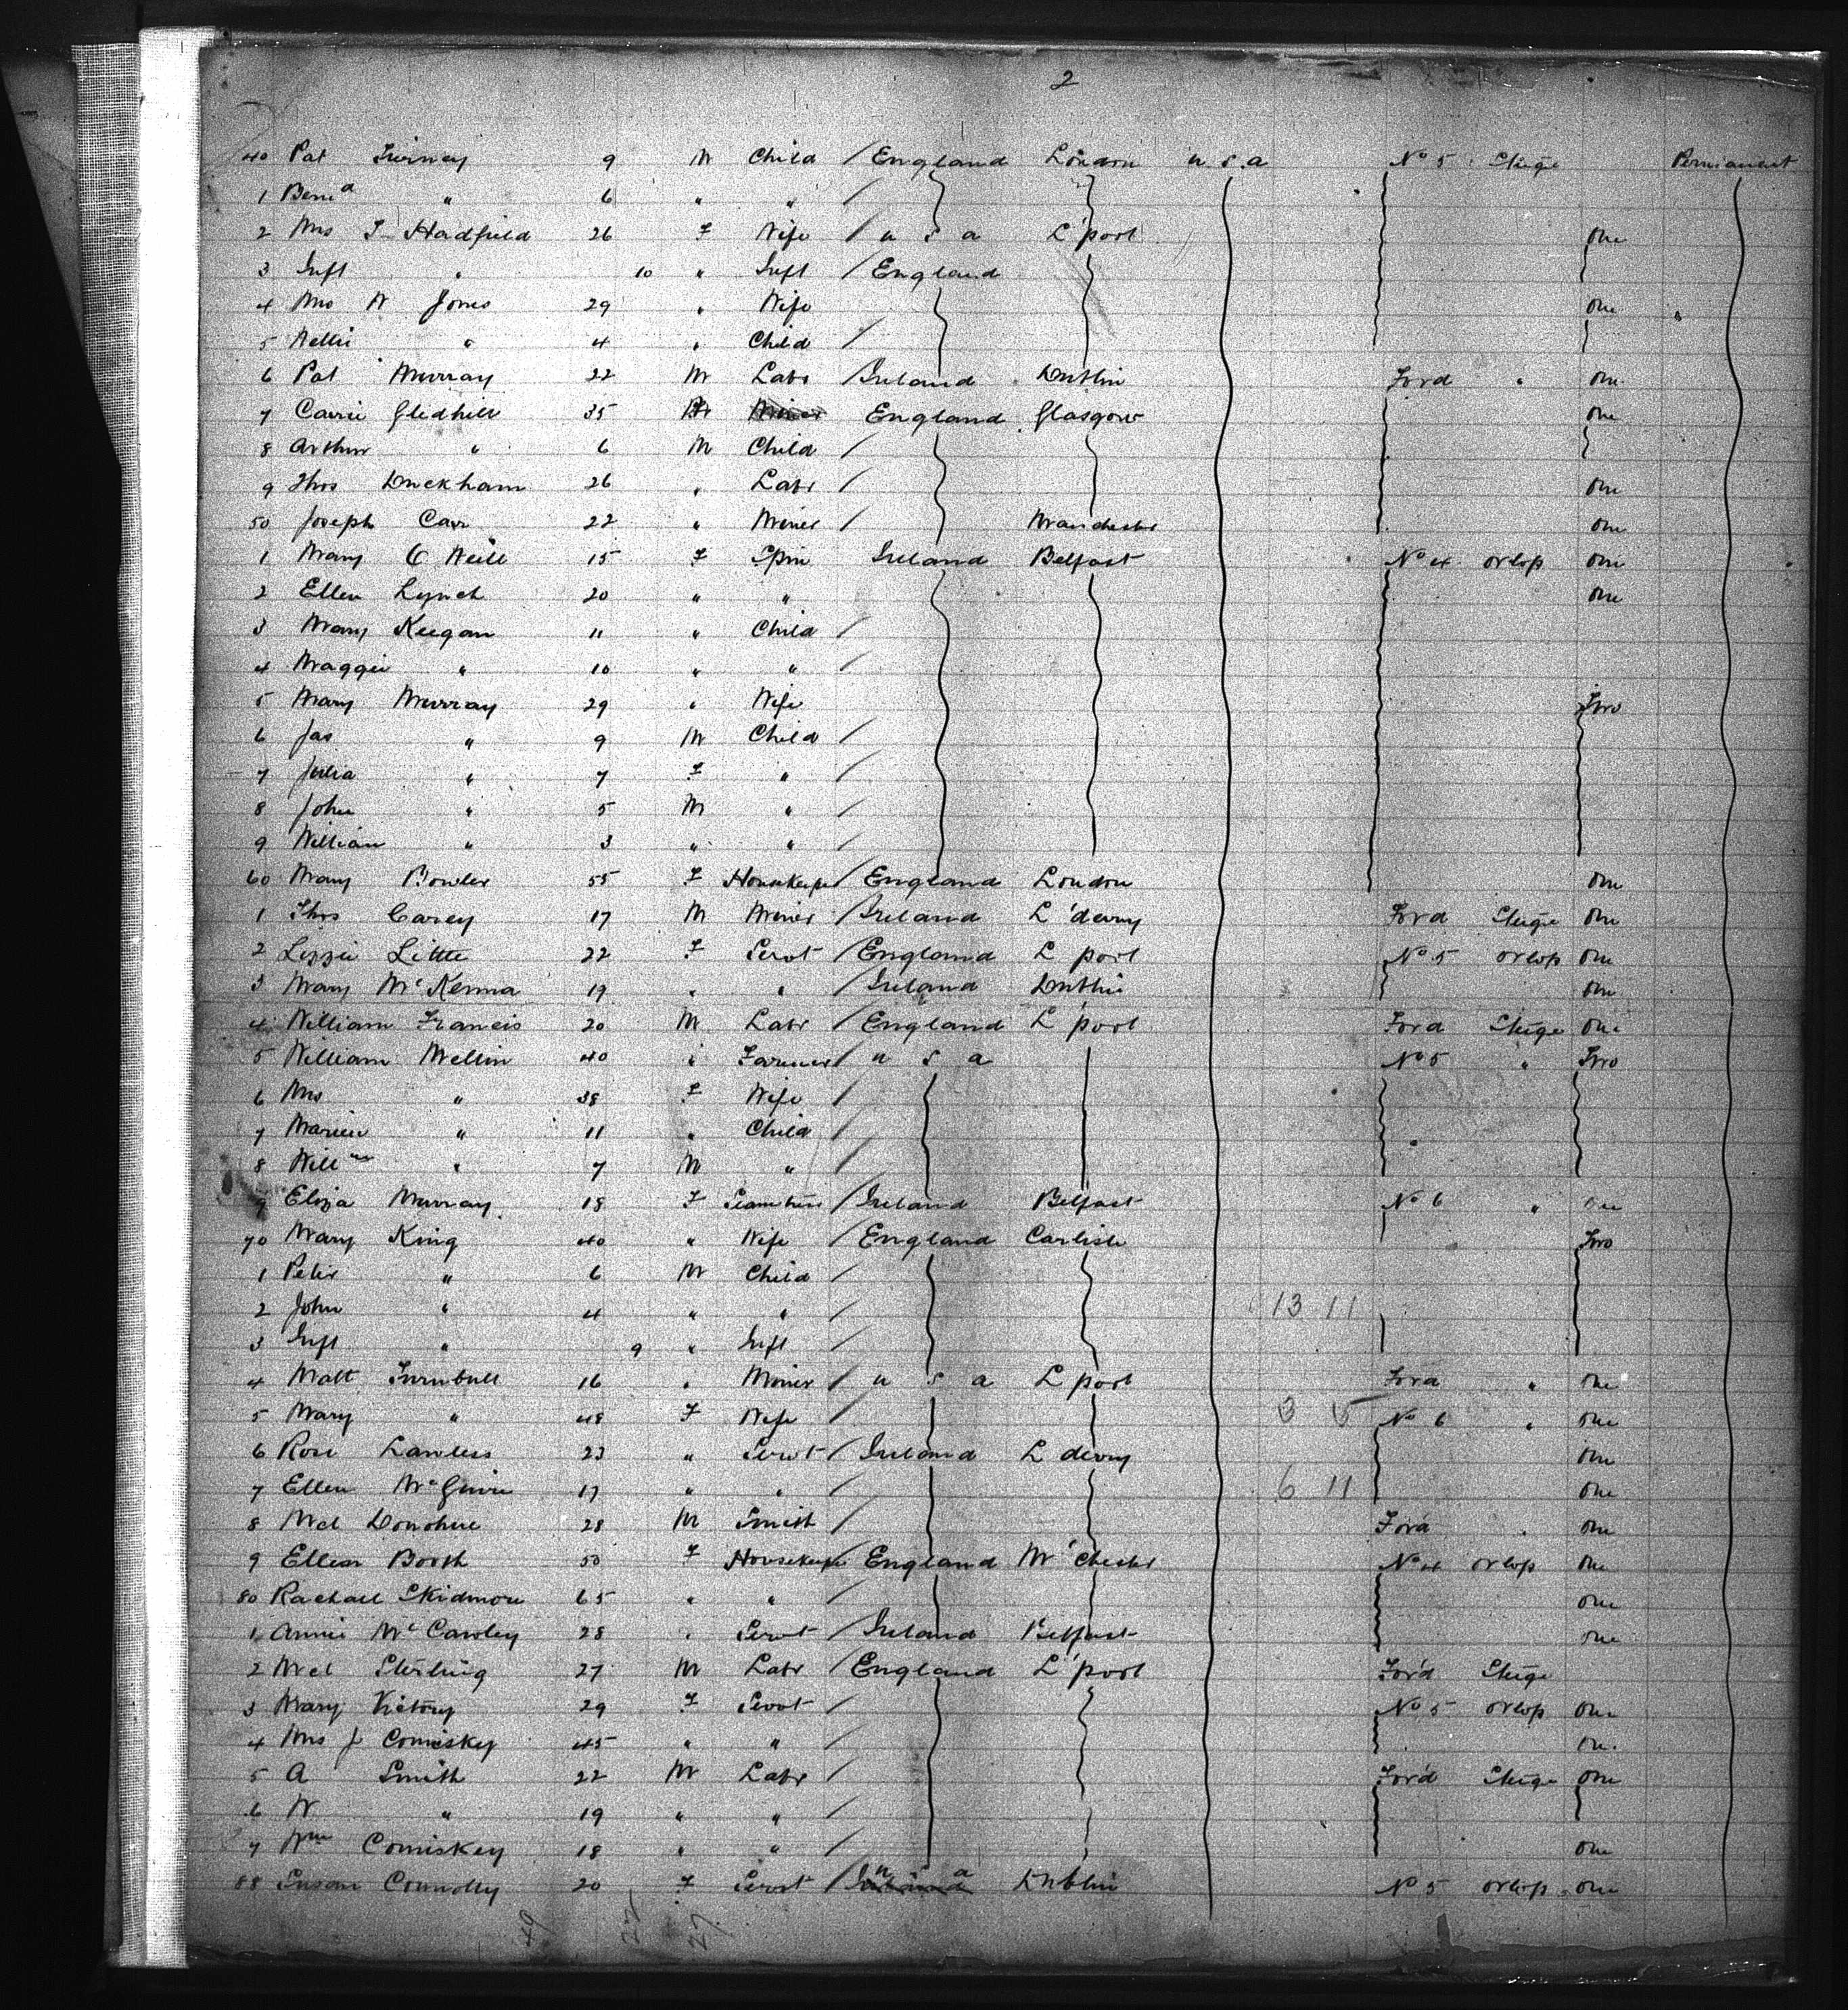 2
40 Pat 9 M Child / England London u s a No 5 Stuge Permanent
1 Bernd " 6 " " /
2 Mrs T Hadfield 26 F Wife / u s a L'pool One
3 Inft " 10 " Inft / England
4 Mrs W Jones 29 " Wife One
5 Nellie " 4 " Child /
6 Pat Murray 22 M Labr / Ireland Dublin Ford " One
7 Carrie Gledhill 35 England Glasgow One
8 Arthur " 6 M Child /
9 Thos Duckham 26 " Labr / One
50 Joseph Carr 22 " Miner / Manchester One
1 Mary O Neill 15 F Spin Ireland Belfast No 4 orlop One
2 Ellen Lynch 20 " " One
3 Mary Keegan 11 " Child /
4 Maggie " 10 " " /
5 Mary Murray 29 " Wife Two
6 Jas " 9 M Child /
7 Julia " 7 F " /
8 John " 5 M " /
9 William " 3 " " /
60 Mary Bowler 55 F Housekeeper / England London One
1 Thos Carey 17 M Miner / Ireland L'derry Ford Stuge One
2 Lizzie Little 22 F Servt / England L'pool No 5 orlop One
3 Mary McKenna 19 " " / Ireland Dublin One
4 William Francis 20 M Labr / England L'pool Ford Stuge One
5 William Mellin 40 " Farmer / u s a No 5 " Two
6 Mrs " 38 F Wife /
7 " 11 " Child /
8 Willm " 7 M " /
9 Eliza Murray 18 F / Ireland Belfast No 6 " One
70 Mary King 40 " Wife / England Carlisle Two
1 Peter " 6 M Child /
2 John " 4 " " / 13 11
3 Inft " 9 " Inft /
4 Matt Turnbull 16 " Miner / u s a L'pool Ford " One
5 Mary " 48 F Wife / 3 5 No 6 " One
6 Rose Lawless 23 " Servt / Ireland L'derry One
7 Ellen McGuire 17 " " / 6 11 One
8 Mcl Donohue 28 M Smith / Ford " One
9 Ellen Booth 50 F Housekeeper / England M'Chester No 4 orlop One
80 Rachael Skidmore 65 " " / One
1 Annie McCawley 28 " Servt / Ireland Belfast One
2 Mcl Sterling 27 M Labr / England L'pool Ford Stuge
3 Mary Victory 29 F Servt / No 5 orlop One
4 Mrs J Comiskey 45 " " / One
5 A Smith 22 M Labr / Ford Stuge One
6 W " 19 " " /
7 Wm Comiskey 18 " " / One
88 Susan Connolly 20 F Servt / u s a Dublin No 5 orlop One
49 22 27